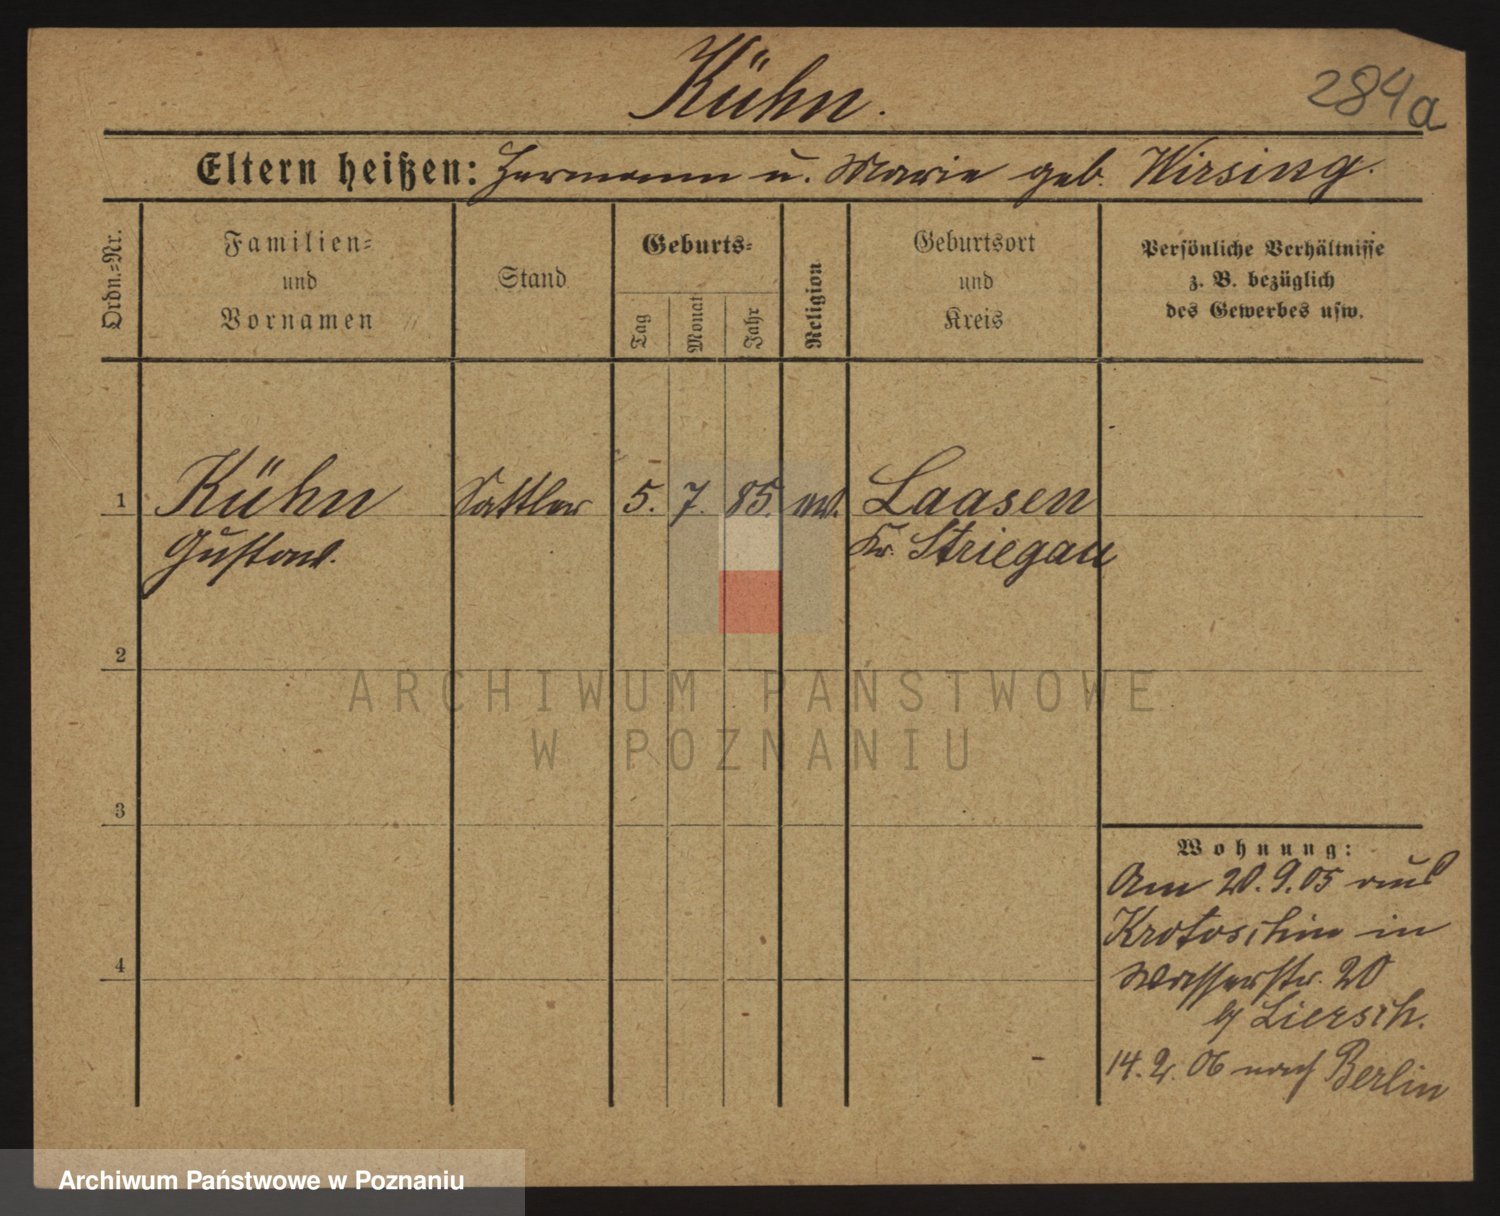 Kühn.
284a
Eltern heißen: Hermann u. Marie geb. Wirsing.
Ordn.=Nr.
Familien=
und
Vornamen
Stand
Geburts=
Tag
Monat
Jahr
Religion
Geburtsort
und
Kreis
Persönliche Verhältnisse
z. B. bezüglich
des Gewerbes usw.
1 Kühn Sattler 5. 7. 85. ev. Laasen
Gustav. Kr. Striegau
2
ARCHIWUM PAŃSTWOWE
W POZNANIU
3
Wohnung:
Am 20. 9. 05 aus
Krotoschin in
4
Wasserstr. 20
b/ Liersch.
14. 2. 06 nach Berlin
Archiwum Państwowe w Poznaniu